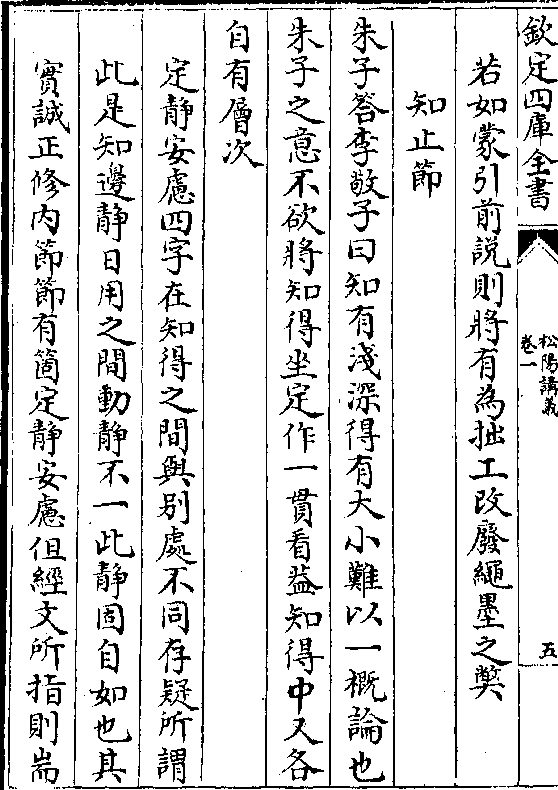 欽定四庫全書
松陽講義
卷一
五
若如蒙引前説則將有為拙工改廢繩墨之獘
知止節
朱子答李敬子曰知有淺深得有大小難以一概論也
朱子之意不欲將知得坐定作一貫看葢知得中又各
自有層次
定靜安慮四字在知得之間與别處不同存疑所謂
此是知邊靜日用之間動靜不一此靜固自如也其
實誠正修内節節有箇定靜安慮但經文所指則耑